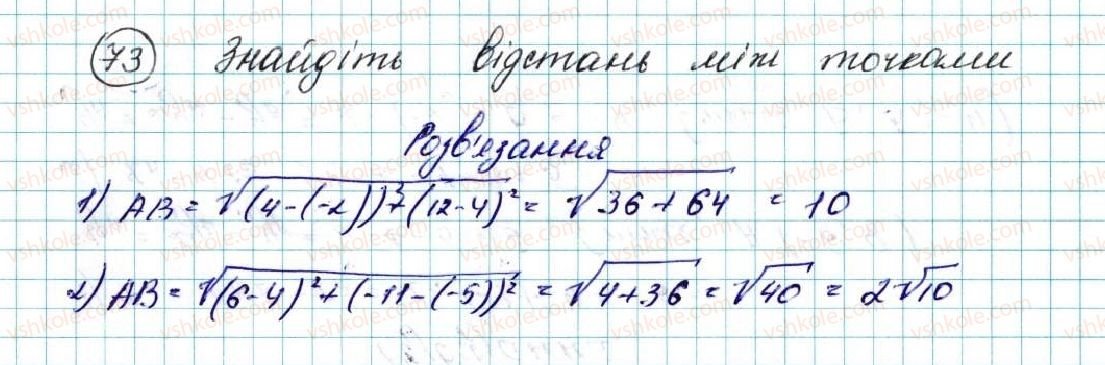 73 Знайдіть відстань між точками
Розв'язання
1) AB = √((4-(-2))²+(12-4)² = √(36+64) = 10
2) AB = √((6-4)²+(-11-(-5))²) = √(4+36) = √40 = 2√10